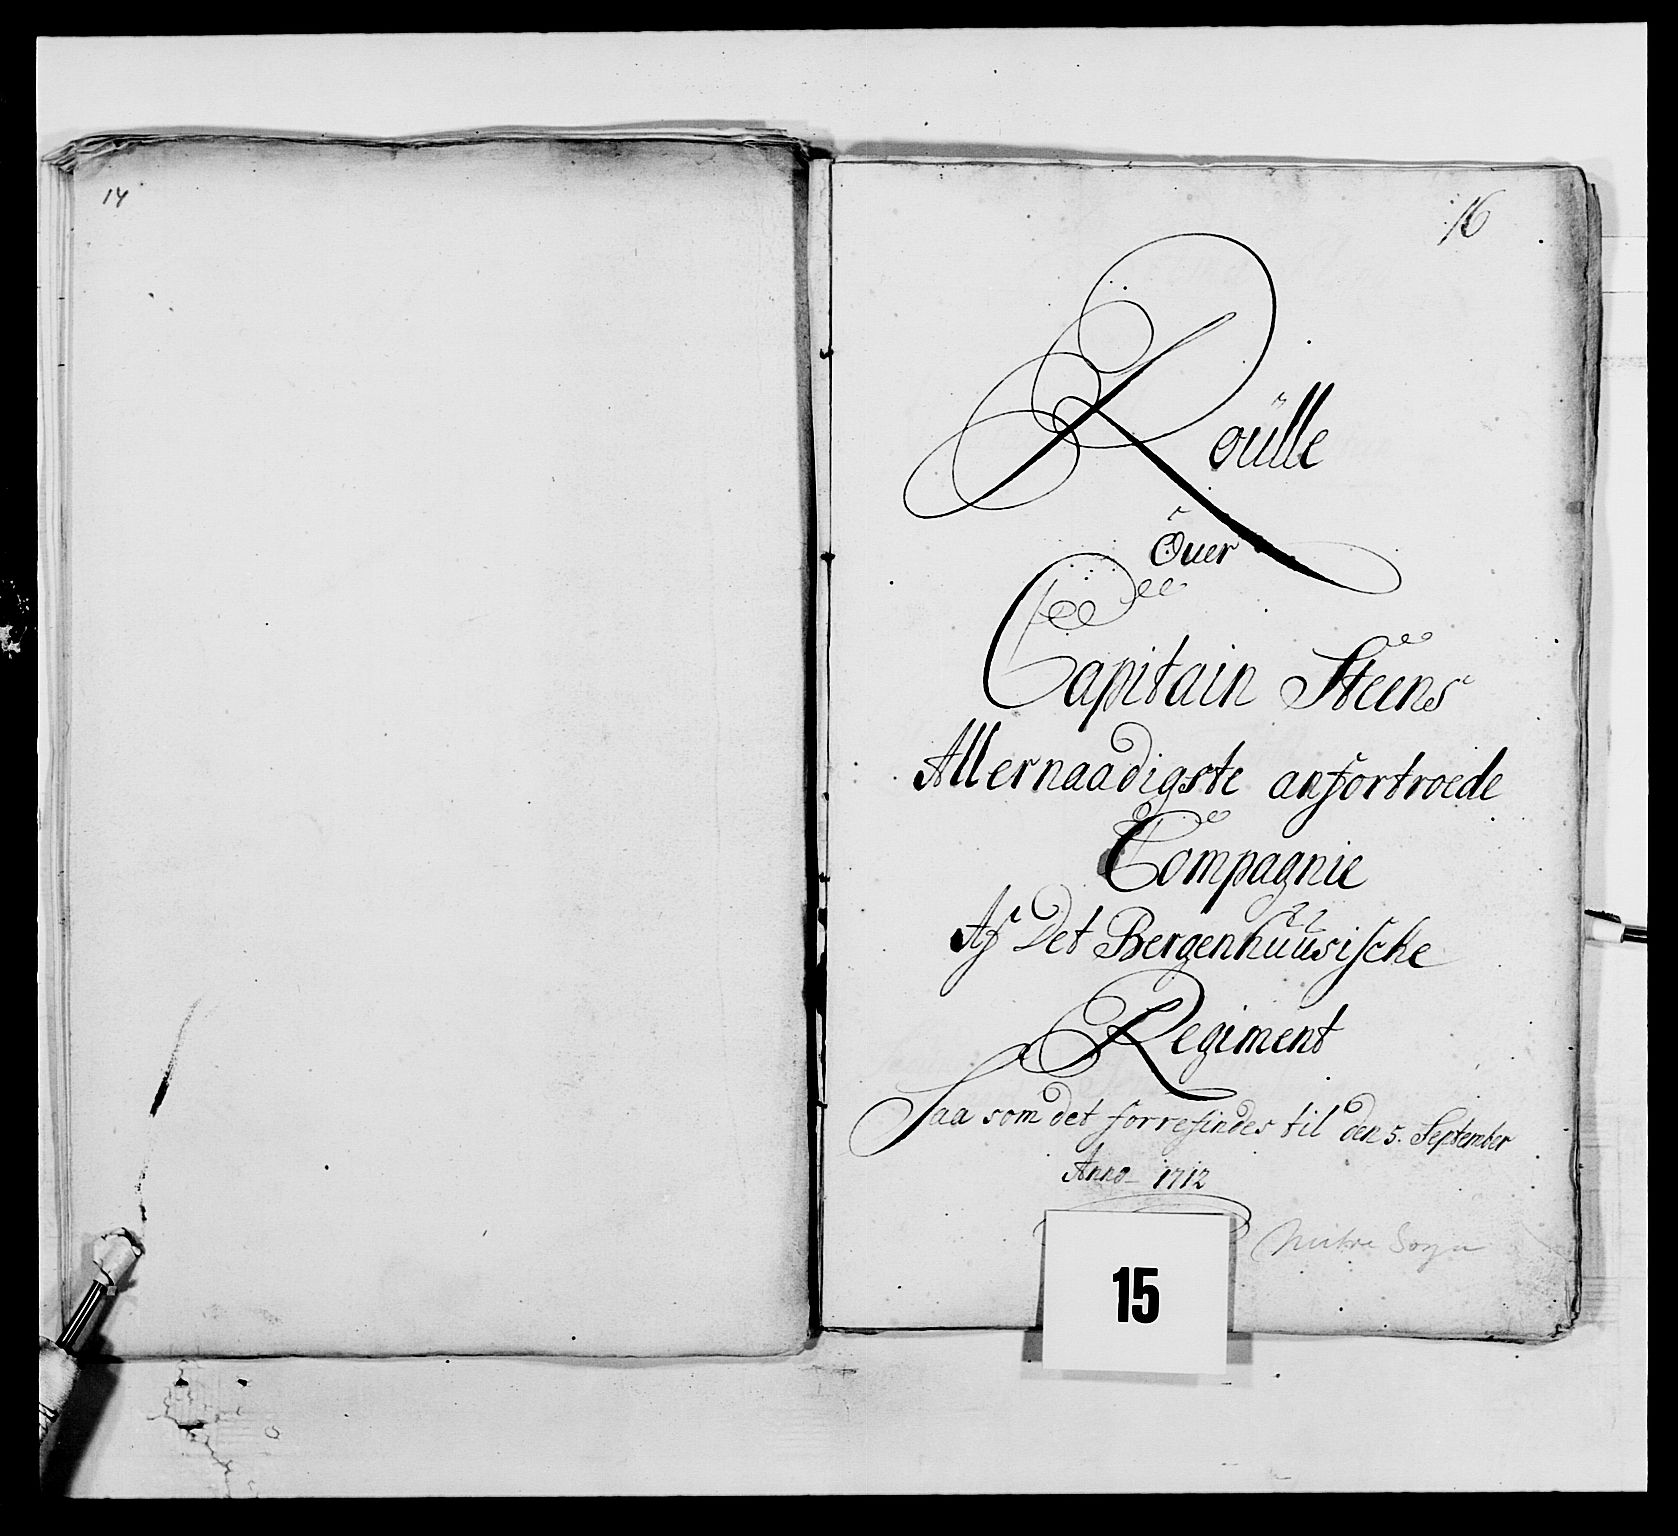 14
16
Roülle
Over
Capitain Steens
Allernaadigste anfortroede
Compagnie
Af Det Bergenhuusische
Regiment
Saa som det forrefindes til den 5. September
Anno 1712
Sogn
15